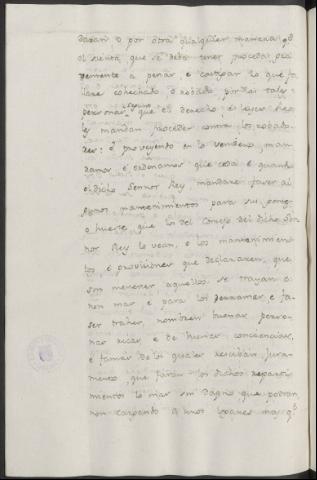 daran, o por otra qualquier manera q̃
el sienta, que se deba tener, proceda, pri
demente a penar, e castigar lo que fa
llare cohechado, o robado por las tales
personas, segund que el derecho, e leyes
mandan proceder contra los robado
res: e proveyendo en lo venidero, man
damos, e ordenamos que cada e quando
el dicho Sennor Rey mandare faser al
gunos mantenimientos para su
o hueste, que los del Consejo del dicho Sen
nor Rey lo vean, e los mantenimien
tos, e provisiones que declararen, que
son menester aquellos se trayan e
non mas e para los derramar, e fa
ser traher, nombren buenas perso
nas ricas, e de buenas conciencias,
e famas de los quales resciban jura
mento, que faran los dichos reparti
mientos lo mas sin dagno que podran,
non cargando a unos logares mas q̃